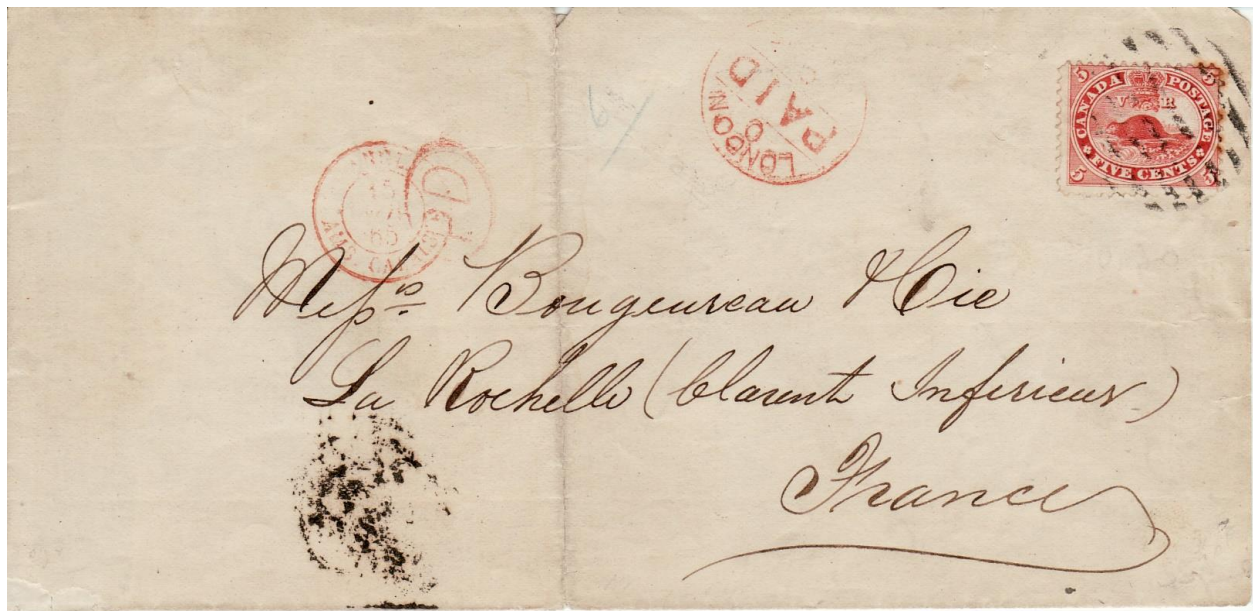 LONDON
PAID
CANADA POSTAGE
V R
5 5
FIVE CENTS
5 5
65
AMB. CALAIS
Messrs. Bougeureau & Cie
La Rochelle (Clarent Inferieur)
France